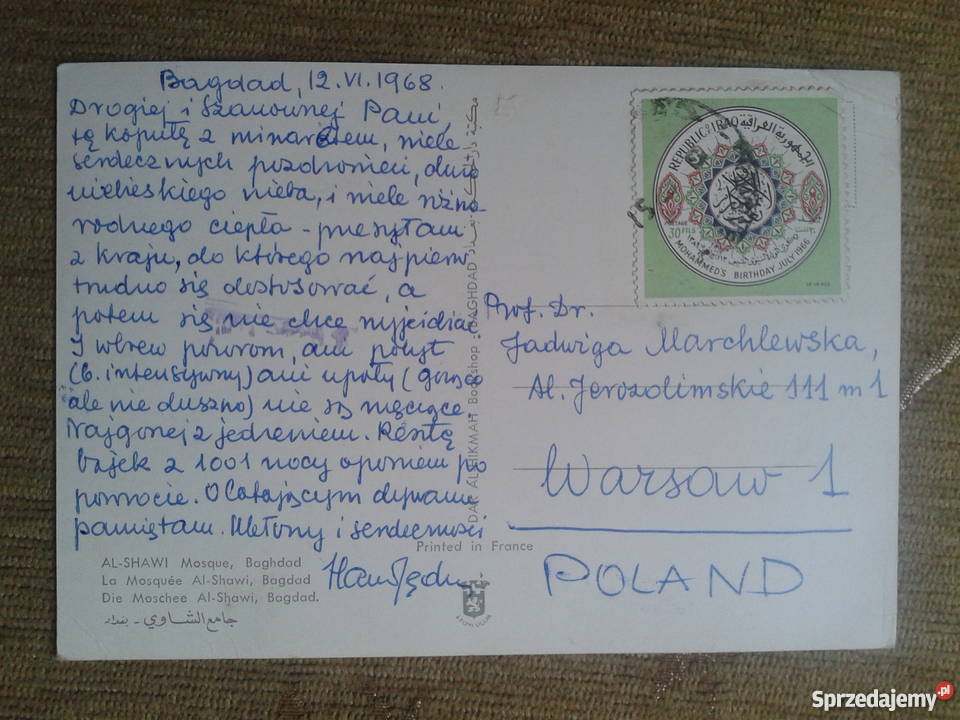 Bagdad, 12.VI.1968.
Drogiej i Szanownej Pani,
tę kopułę z minaretem, wiele
serdecznych pozdrowień, dużo
niebieskiego nieba, i wiele różno
rodnego ciepła - przesyłam
z kraju, do którego najpierw
trudno się dostosować, a
potem się nie chce wyjeżdżać
I wbrew pozorom, ani pobyt
(b. intensywny) ani upały (gorąco
ale nie duszno) nie są męczące
Najgorzej z jedzeniem. Resztę
bajek z 1001 nocy opowiem po
powrocie. O latającym dywanie
pamiętam. Ukłony i serdeczności
AL-SHAWI Mosque, Baghdad
La Mosquée Al-Shawi, Bagdad
Die Moschee Al-Shawi, Bagdad.
جامع الشاوي - بغداد
Printed in France
DAR ALHIKMAH Bookshop - BAGHDAD
REPUBLIC OF IRAQ
الجمهورية العراقية
POSTAGE
30 FILS
MOHAMMED'S BIRTHDAY JULY 1966
Prof. Dr.
Jadwiga Marchlewska,
Al. Jerozolimskie 111 m 1
Warsaw 1
POLAND
Sprzedajemy.pl